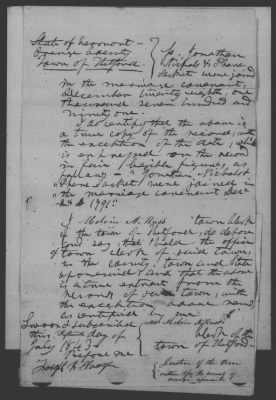 State of Vermont -
Orange County
Town of Thetford
Jonathan
Nichols & Phene
Sacket were joined
in the marriage covenant,
December twenty eighth, one
thousand seven hundred and
ninety one."
I do certify that the above is
a true copy of the record, with
the exception of the date, which
is expressed on the record
in fair legible figures, as
follows - "Jonathan Nichols &
Phene Sacket were joined in
the marriage covenant Decr
28th 1791"
I Melvin A. town clerk
of the town of Thetford, do depose
and say, that I hold the office
of town clerk of said town,
in the county, town and state
aforesaid & that the above
is a true extract from the
records of said town, with
the exception above named
as certified by me
Sworn & subscribed
this day of
July 1843
Before me
Joseph
Melvin
clerk of the
town of Thetford -
Justice of the Peace
within & for the county of